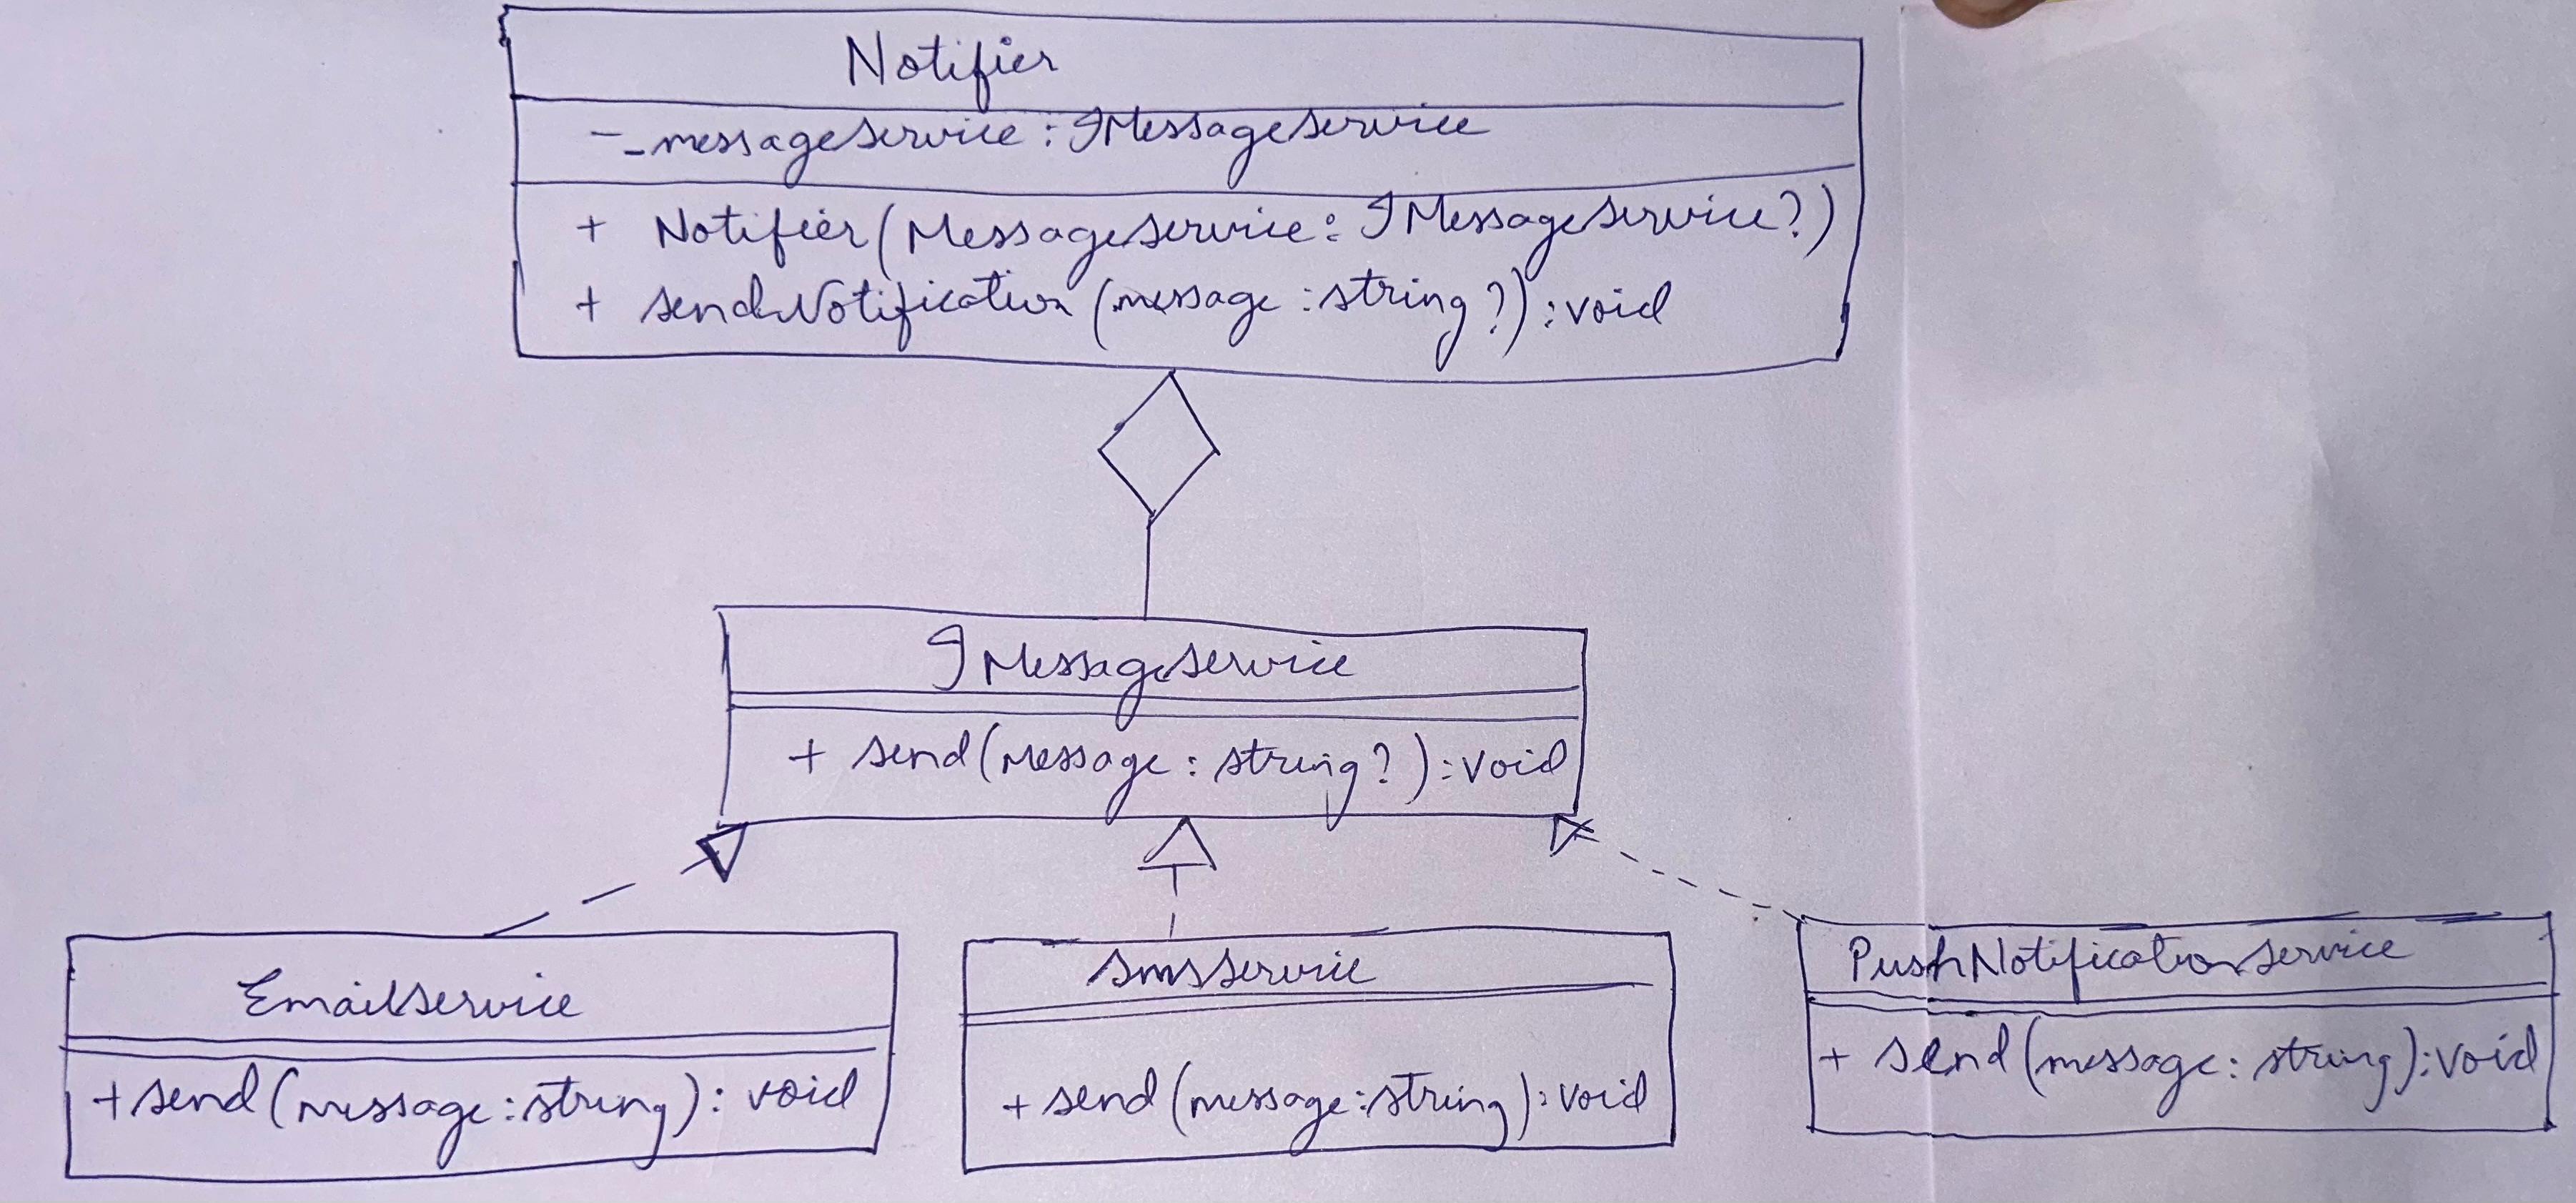 Notifier
- _messageService : IMessageService
+ Notifier(MessageService: IMessageService?)
+ sendNotification (message : string?) : void
IMessageService
+ send(message : string?) : void
EmailService
+ send(message : string) : void
smsService
+ send(message : string) : void
PushNotificationService
+ send(message : string) : void